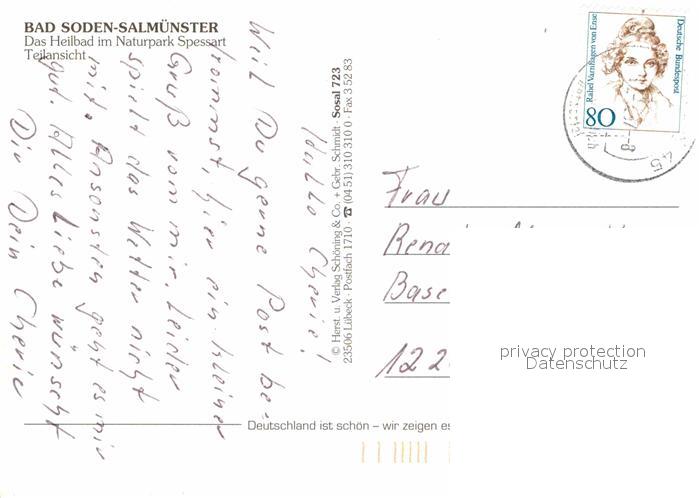 BAD SODEN-SALMÜNSTER
Das Heilbad im Naturpark Spessart
Teilansicht
Hallo Cherie!
Weil Du gerne Post be-
kommst, hier ein kleiner
Gruß von mir. Leider
spielt das Wetter nicht
mit. Ansonsten geht es mir
gut. Alles Liebe wünscht
Dir Dein Cherie
© Herst. u. Verlag Schöning & Co. + Gebr. Schmidt · Sosal 723
23506 Lübeck · Postfach 1710 · ☎ (04 51) 310 310 0 · Fax 3 52 83
Rahel Varnhagen von Ense
Deutsche Bundespost
80
45
Frau
Rena
Base
122
privacy protection
Datenschutz
Deutschland ist schön – wir zeigen es